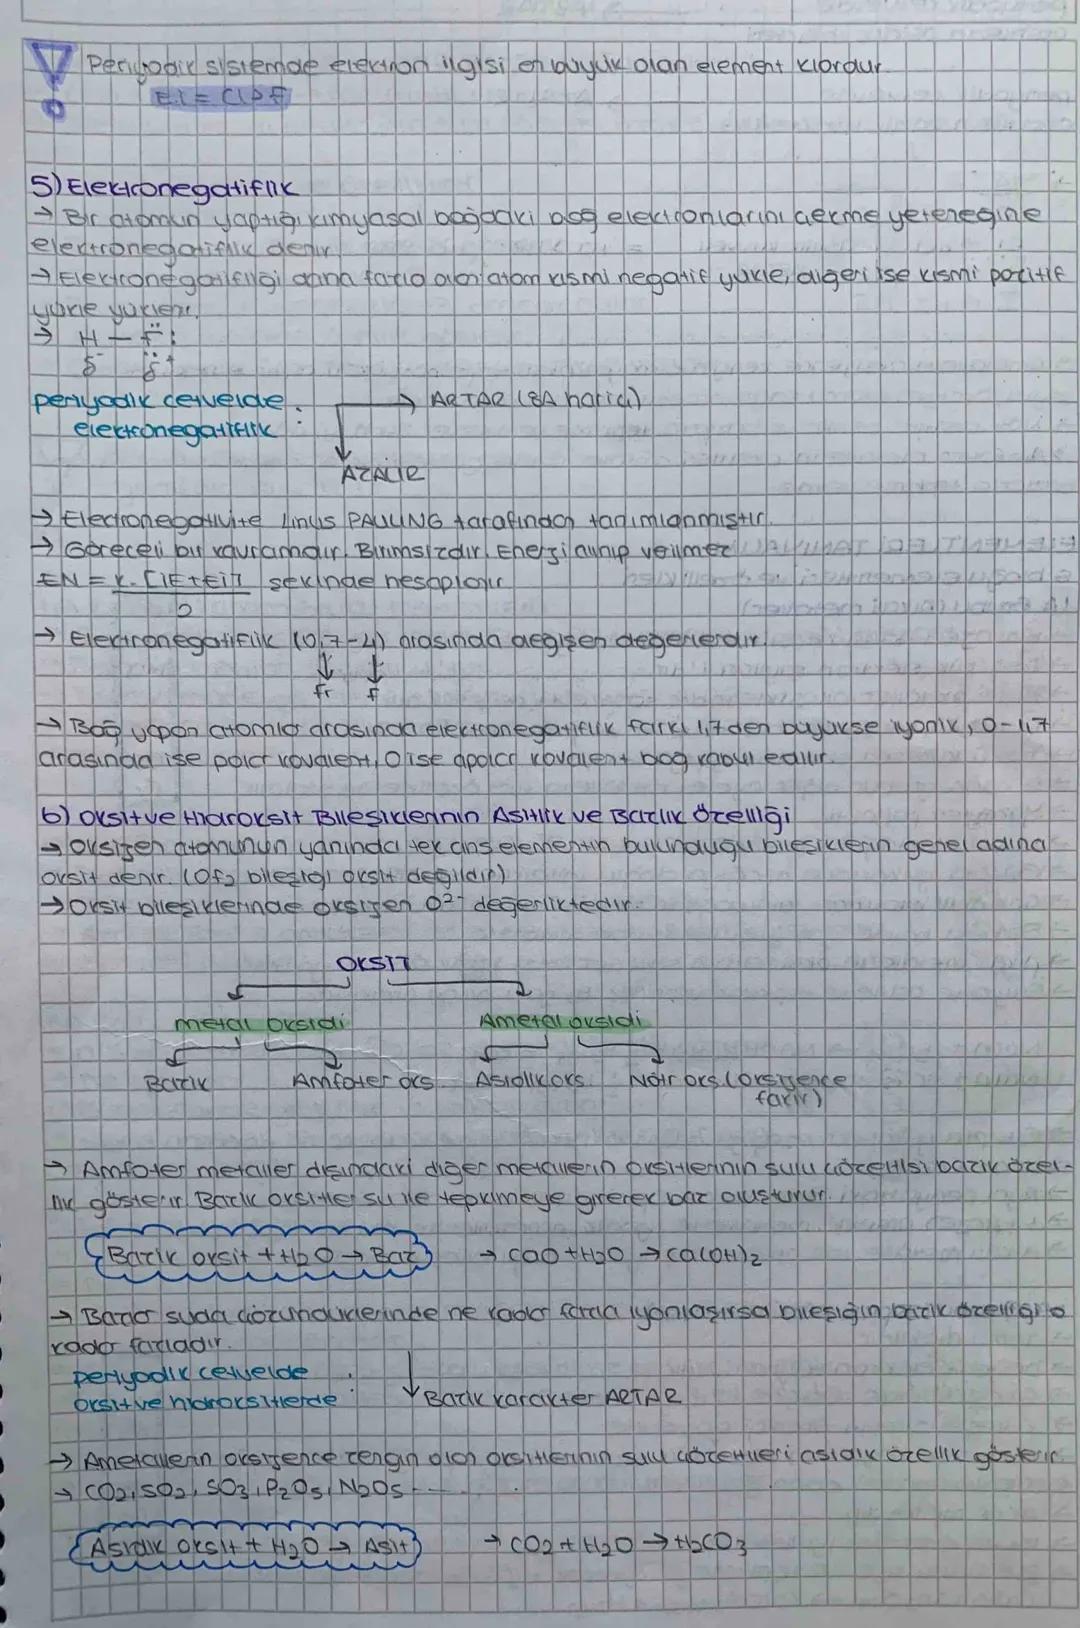 Periyodik sistemde elektron ilgisi en büyük olan element klordur.
E.İ = Cl > F
5) Elektronegatiflik
→ Bir atomun yaptığı kimyasal bağdaki bağ elektronlarını çekme yeteneğine
elektronegatiflik denir.
→ Elektronegatifliği daha fazla olan atom kısmi negatif yükle, diğeri ise kısmi pozitif
yükle yüklenir.
→ H — F:
δ⁻ δ⁺
periyodik cetvelde : → ARTAR (8A harici)
elektronegatiflik
AZALIR
→ Elektronegativite Linus PAULING tarafından tanımlanmıştır.
→ Göreceli bir kavramdır. Birimsizdir. Enerji alınıp verilmez
EN = k. [IE + Eİ] şeklinde hesaplanır
2
→ Elektronegatiflik (0,7-4) arasında değişen değerlerdir.
↓ ↓
Fr F
→ Bağ yapan atomlar arasında elektronegatiflik farkı 1,7 den büyükse iyonik, 0-1,7
arasında ise polar kovalent, 0 ise apolar kovalent bağ kabul edilir.
6) Oksit ve Hidroksit Bileşiklerinin Asitlik ve Bazlık Özelliği
→ Oksijen atomunun yanında tek cins elementin bulunduğu bileşiklerin genel adına
oksit denir. (OF2 bileşiği oksit değildir)
→ Oksit bileşiklerinde oksijen O²⁻ değerliktedir.
OKSİT
metal oksidi Ametal oksidi
Bazik Amfoter oks Asidik oks. Nötr oks. (oksijence
fakir)
→ Amfoter metaller dışındaki diğer metallerin oksitlerinin sulu çözeltisi bazik özel-
lik gösterir. Bazik oksitler su ile tepkimeye girerek baz oluşturur.
Bazik oksit + H2O → Baz → CaO + H2O → Ca(OH)2
→ Bazlar suda çözündüklerinde ne kadar fazla iyonlaşırsa bileşiğin bazik özelliği o
kadar fazladır.
periyodik cetvelde
oksit ve hidroksitlerde : ↓ Bazik karakter ARTAR
→ Ametallerin oksijence zengin olan oksitlerinin sulu çözeltileri asidik özellik gösterir.
→ CO2, SO2, SO3, P2O5, N2O5 ....
Asidik oksit + H2O → Asit → CO2 + H2O → H2CO3